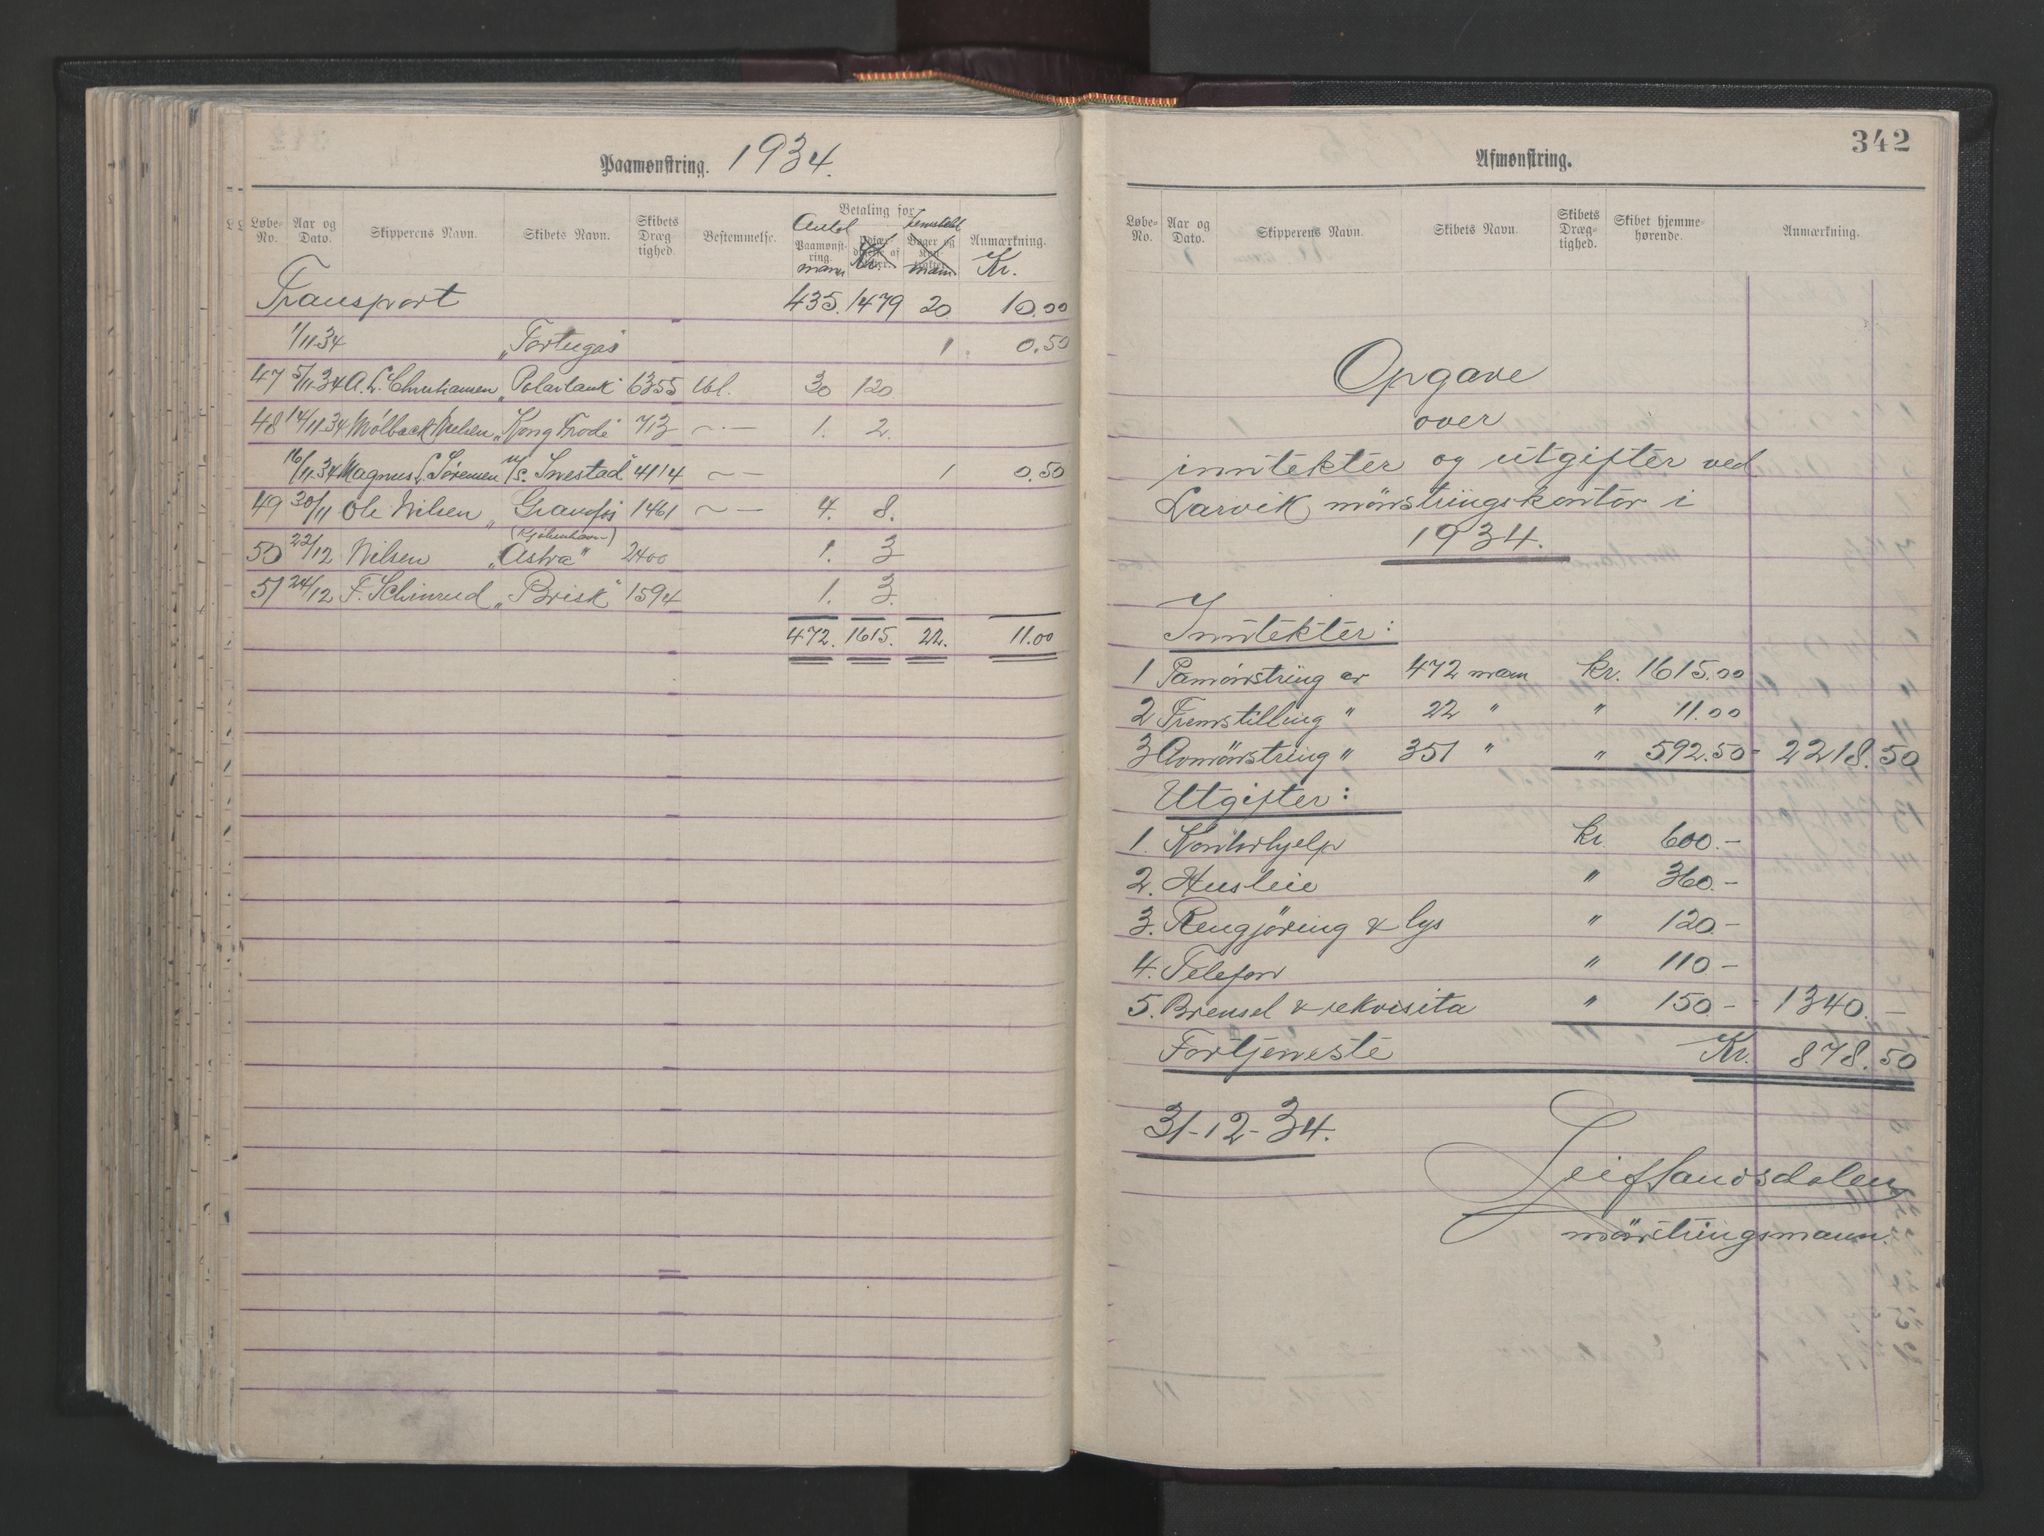 Paamønstring. 1934.
Løbe-No. Aar og Dato. Skipperens Navn. Skibets Navn. Skibets Dræg-tighed. Bestemmelse. Betaling for Paamønst-ring. Anmærkning.
mann Kr. mann Kr.
Transport 435. 1479 20 10.00
1/11-34 „Tortugas" 1 0.50
47 5/11-34 A. L. Christiansen „Polartank" 6355 Ubl. 30 120
48 14/11-34 Mølback Nielsen „Kong Frode" 713 —〃— 1. 2.
16/11-34 Magnus L. Sørensen m/s. Snestad" 4114 —〃— 1 0.50
49 30/11 Ole Nilsen „Granfos 1461 —〃— 4. 8.
(Kjøbenhavn)
50 22/12 Nilsen „Astra" 2400 1. 3
51 24/12 F. Schinrud „Brisk" 1594 1. 3.
472. 1615. 22. 11.00
342
Afmønstring.
Løbe-No. Aar og Dato. Skipperens Navn. Skibets Navn. Skibets Dræg-tighed. Skibet hjemme-hørende. Anmærkning.
Opgave
over
inntekter og utgifter ved
Larvik mønstringskontor i
1934.
Inntekter:
1 Påmønstring av 472 mann kr. 1615.00
2 Fremstilling " 22 " " 11.00
3 Avmønstring " 351 " " 592.50 - 2218.50
Utgifter:
1. Kontorhjelp kr. 600.-
2. Husleie " 360.-
3. Rengjøring & lys " 120.-
4. Telefon " 110.-
5. Brensel & rekvisita " 150.- 1340.-
Fortjeneste Kr. 878.50
31-12-34.
Leif Sandsdalen
mønstringsmann.